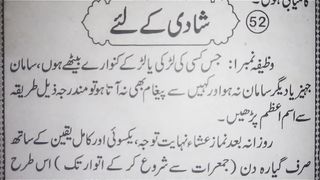 کامیابی ہوگی۔
شادی کے لئے
52
وظیفہ نمبر ۱: جس کسی کی لڑکی یا لڑکے کنوارے بیٹھے ہوں، سامان
جہیز یا دیگر سامان نہ ہو اور کہیں سے پیغام بھی نہ آتا ہو تو مندرجہ ذیل طریقہ
سے اسم اعظم پڑھیں۔
روزانہ بعد نماز عشاء نہایت توجہ، یکسوئی اور کامل یقین کے ساتھ
صرف گیارہ دن (جمعرات سے شروع کر کے اتوار تک) اس طرح